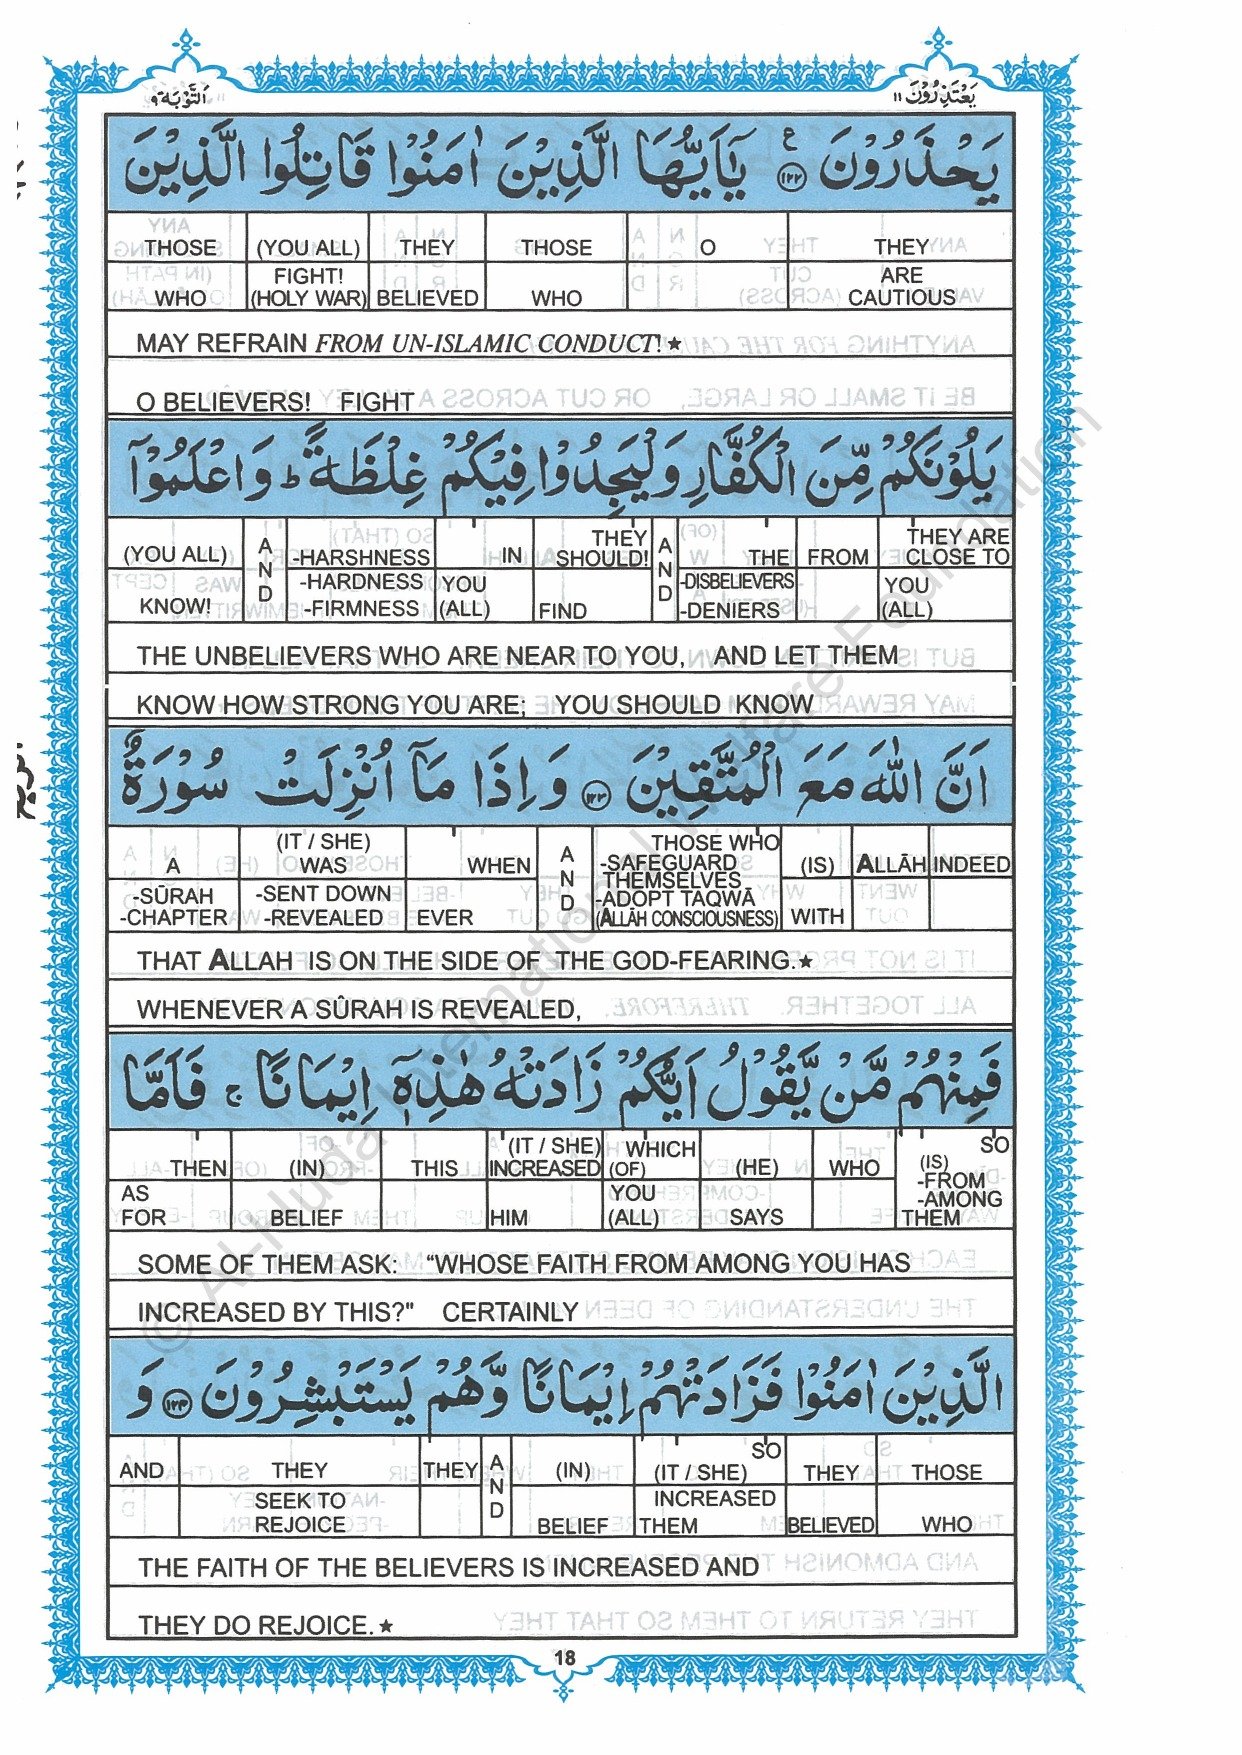 يَعْتَذِرُوْنَ ١١
اَلتَّوْبَة ٩
يَحْذَرُوْنَ ۧ ﴿١٢٢﴾ يٰۤاَيُّهَا الَّذِيْنَ اٰمَنُوْا قَاتِلُوا الَّذِيْنَ
THOSE (YOU ALL) THEY THOSE O THEY
WHO FIGHT! (HOLY WAR) BELIEVED WHO ARE CAUTIOUS
MAY REFRAIN FROM UN-ISLAMIC CONDUCT!★
O BELIEVERS! FIGHT
يَلُوْنَكُمْ مِّنَ الْكُفَّارِ وَلْيَجِدُوْا فِيْكُمْ غِلْظَةً ؕ وَاعْلَمُوْۤا
(YOU ALL) AND -HARSHNESS IN THEY SHOULD! AND THE FROM THEY ARE CLOSE TO
KNOW! -HARDNESS -FIRMNESS YOU (ALL) FIND -DISBELIEVERS -DENIERS YOU (ALL)
THE UNBELIEVERS WHO ARE NEAR TO YOU, AND LET THEM
KNOW HOW STRONG YOU ARE; YOU SHOULD KNOW
اَنَّ اللّٰهَ مَعَ الْمُتَّقِيْنَ ﴿١٢٣﴾ وَ اِذَا مَاۤ اُنْزِلَتْ سُوْرَةٌ
A (IT / SHE) WAS WHEN AND THOSE WHO -SAFEGUARD THEMSELVES (IS) ALLĀH INDEED
-SŪRAH -CHAPTER -SENT DOWN -REVEALED EVER -ADOPT TAQWĀ (ALLĀH CONSCIOUSNESS) WITH
THAT ALLAH IS ON THE SIDE OF THE GOD-FEARING.★
WHENEVER A SÛRAH IS REVEALED,
فَمِنْهُمْ مَّنْ يَّقُوْلُ اَيُّكُمْ زَادَتْهُ هٰذِهٖۤ اِيْمَانًا ۚ فَاَمَّا
THEN (IN) THIS (IT / SHE) INCREASED WHICH (OF) (HE) WHO SO (IS)
AS FOR BELIEF HIM YOU (ALL) SAYS -FROM -AMONG THEM
SOME OF THEM ASK: “WHOSE FAITH FROM AMONG YOU HAS
INCREASED BY THIS?" CERTAINLY
الَّذِيْنَ اٰمَنُوْا فَزَادَتْهُمْ اِيْمَانًا وَّهُمْ يَسْتَبْشِرُوْنَ ﴿١٢٤﴾ وَ
AND THEY THEY AND (IN) SO (IT / SHE) THEY THOSE
SEEK TO REJOICE BELIEF INCREASED THEM BELIEVED WHO
THE FAITH OF THE BELIEVERS IS INCREASED AND
THEY DO REJOICE.★
18
© Al-Huda International Welfare Foundation